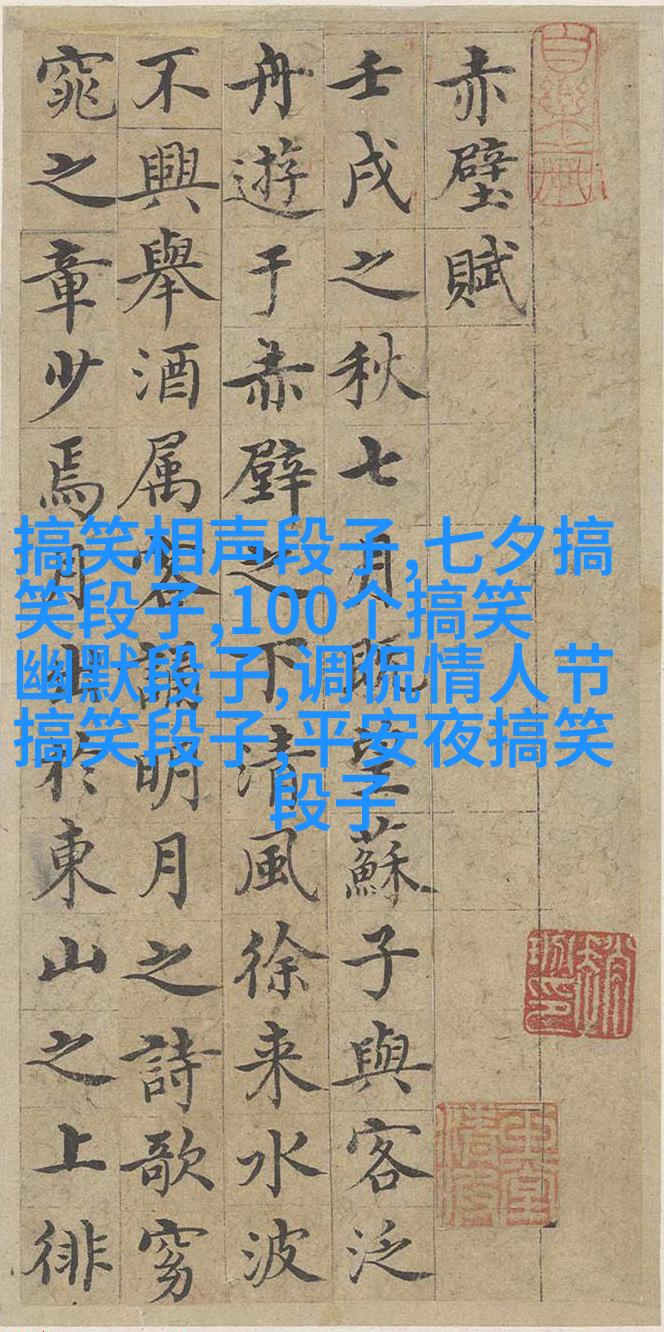 赤壁賦
壬戌之秋七月既望蘇子與客泛
舟遊于赤壁之下清風徐来水波
不興舉酒属客誦明月之詩歌窈
窕之章少焉月出於東山之上徘
搞笑相声段子,七夕搞
笑段子,100个搞笑
幽默段子,调侃情人节
搞笑段子,平安夜搞笑
段子